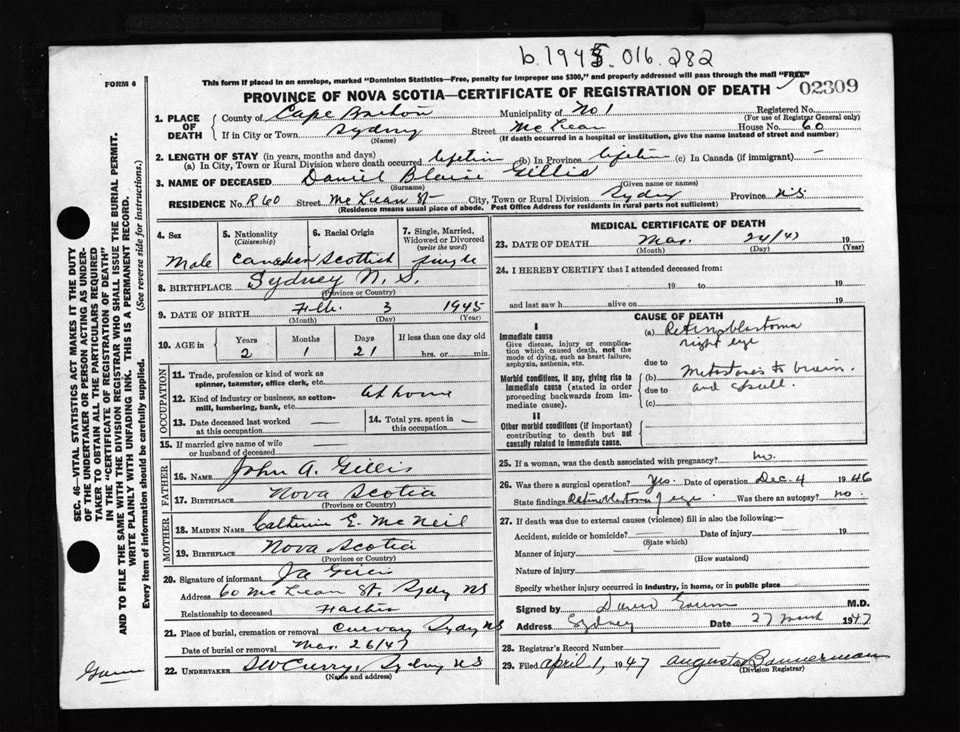 b.1945.016.282
FORM 6
This form if placed in an envelope, marked "Dominion Statistics—Free, penalty for improper use $300," and properly addressed will pass through the mail "FREE"
PROVINCE OF NOVA SCOTIA—CERTIFICATE OF REGISTRATION OF DEATH
02309
1. PLACE OF DEATH
County of Cape Breton Municipality of No 1 Registered No.
(For use of Registrar General only)
If in City or Town Sydney Street McLean House No. 60
(Name) (If death occurred in a hospital or institution, give the name instead of street and number)
2. LENGTH OF STAY (in years, months and days)
(a) In City, Town or Rural Division where death occurred lifetime (b) In Province lifetime (c) In Canada (if immigrant) —
3. NAME OF DECEASED Daniel Blaise Gillis
(Surname) (Given name or names)
RESIDENCE No. R 60 Street McLean St City, Town or Rural Division Sydney Province N.S
(Residence means usual place of abode. Post Office Address for residents in rural parts not sufficient)
4. Sex
Male
5. Nationality
(Citizenship)
Canadian
6. Racial Origin
Scottish
7. Single, Married, Widowed or Divorced
(write the word)
single
8. BIRTHPLACE Sydney N. S.
(Province or Country)
9. DATE OF BIRTH Feb. 3 1945
(Month) (Day) (Year)
10. AGE in
Years Months Days If less than one day old
2 1 21 hrs. or min.
OCCUPATION
11. Trade, profession or kind of work as spinner, teamster, office clerk, etc.
12. Kind of industry or business, as cotton-mill, lumbering, bank, etc. at home
13. Date deceased last worked at this occupation —
14. Total yrs. spent in this occupation —
15. If married give name of wife or husband of deceased —
FATHER
16. NAME John A. Gillis
17. BIRTHPLACE Nova Scotia
(Province or Country)
MOTHER
18. MAIDEN NAME Catherine E. McNeil
19. BIRTHPLACE Nova Scotia
(Province or Country)
20. Signature of informant J A Gillis
Address 60 McLean St. Sydney NS
Relationship to deceased Father
21. Place of burial, cremation or removal Sydney NS
Date of burial or removal Mar. 26/47
22. UNDERTAKER S W Curry, Sydney NS
(Name and address)
MEDICAL CERTIFICATE OF DEATH
23. DATE OF DEATH Mar. 24/47 19
(Month) (Day) (Year)
24. I HEREBY CERTIFY that I attended deceased from:
19 to 19
and last saw h alive on 19
CAUSE OF DEATH
I
Immediate cause
Give disease, injury or complication which caused death, not the mode of dying, such as heart failure, asphyxia, asthenia, etc.
(a) Retinoblastoma right eye
due to
Morbid conditions, if any, giving rise to immediate cause (stated in order proceeding backwards from immediate cause).
(b) Metastases to brain and skull.
due to
(c)
II
Other morbid conditions (if important) contributing to death but not causally related to immediate cause.
25. If a woman, was the death associated with pregnancy? no.
26. Was there a surgical operation? Yes. Date of operation Dec. 4 1946
State findings Retinoblastoma of eye Was there an autopsy? no.
27. If death was due to external causes (violence) fill in also the following:—
Accident, suicide or homicide? Date of injury 19
(State which)
Manner of injury
(How sustained)
Nature of injury
Specify whether injury occurred in industry, in home, or in public place
Signed by M.D.
Address Sydney Date 27 March 1947
28. Registrar's Record Number
29. Filed April 1, 1947 Augusta Bannerman
(Division Registrar)
SEC. 46—VITAL STATISTICS ACT MAKES IT THE DUTY
OF THE UNDERTAKER OR PERSON ACTING AS UNDERTAKER TO OBTAIN ALL THE PARTICULARS REQUIRED
IN THE "CERTIFICATE OF REGISTRATION OF DEATH"
AND TO FILE THE SAME WITH THE DIVISION REGISTRAR WHO SHALL ISSUE THE BURIAL PERMIT.
WRITE PLAINLY WITH UNFADING INK. THIS IS A PERMANENT RECORD.
Every item of information should be carefully supplied. (See reverse side for instructions.)